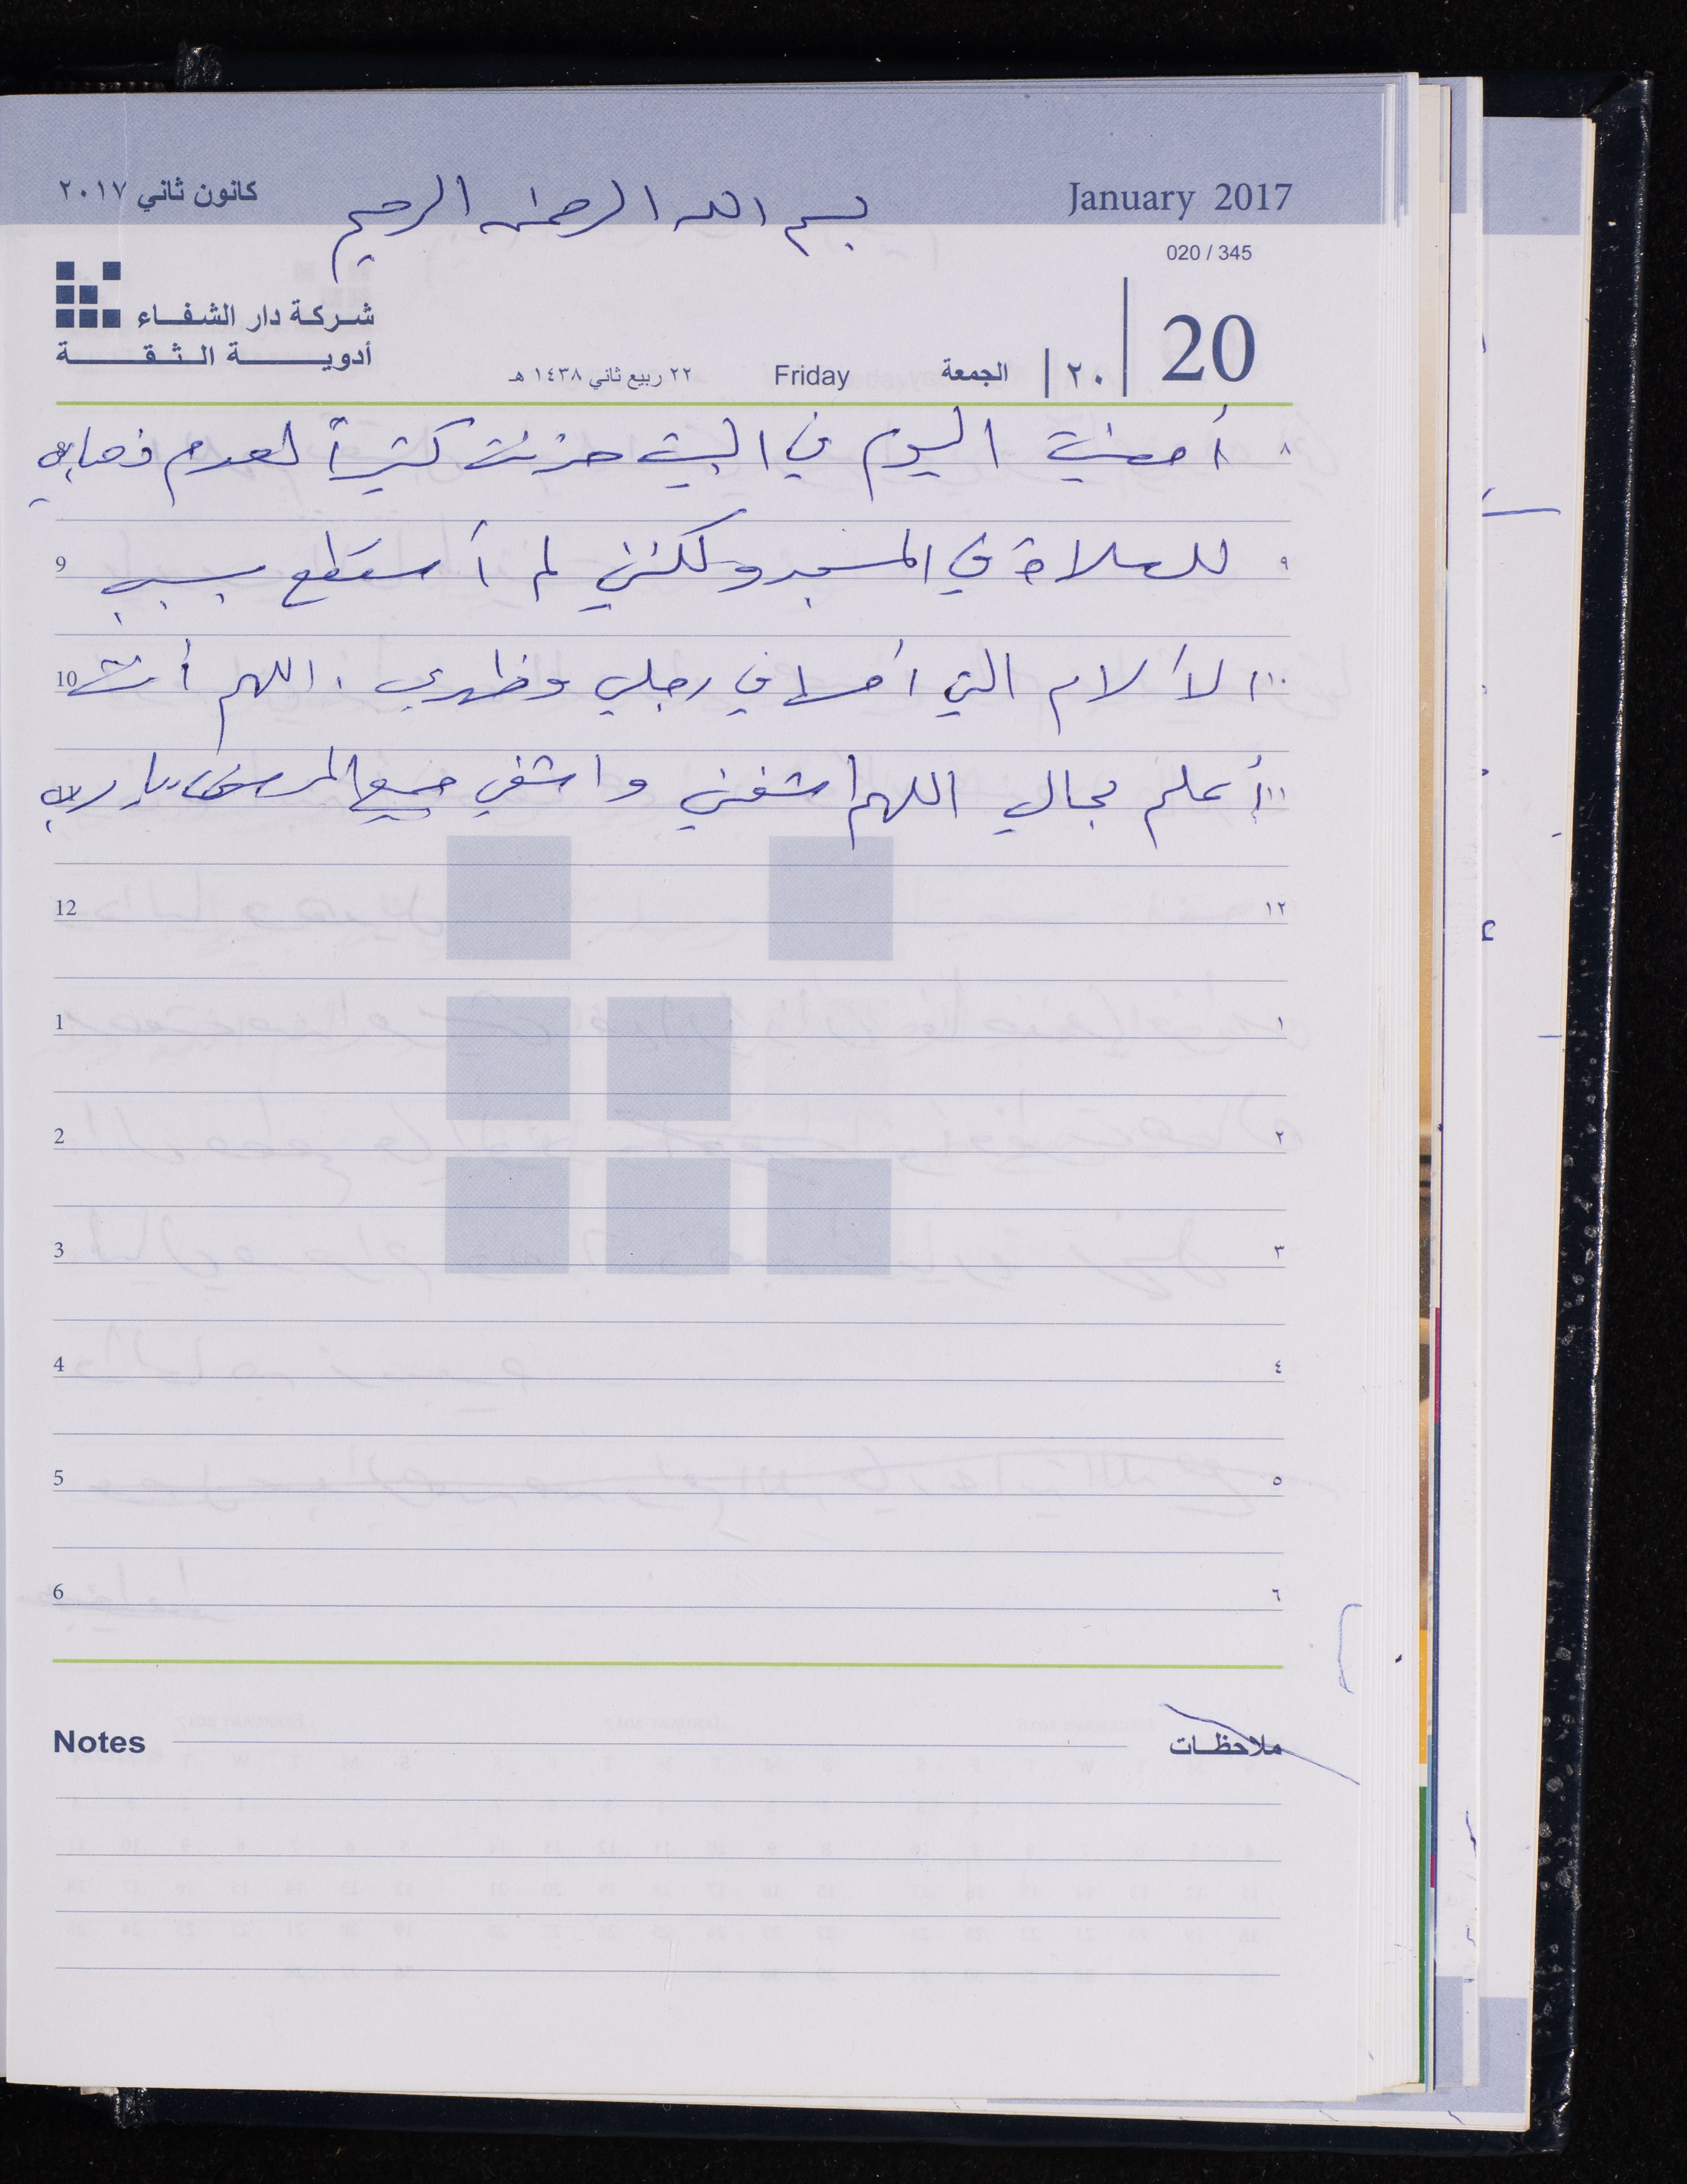 كانون ثاني ٢٠١٧ بسم الله الرحمن الرحيم January 2017
020 / 345
شركة دار الشفاء
أدوية الثقة
٢٢ ربيع ثاني ١٤٣٨ هـ Friday الجمعة ٢٠ 20
٨ أمضيت اليوم في البيت حزنت كثيراً لعدم ذهابي
٩ للصلاة في المسجد ولكنني لم أستطع بسبب 9
١٠ الألام التي أحسها في رجلي وظهري . اللهم أنت 10
١١ أعلم بحالي اللهم اشفني واشفي جميع المرضى يا رب
12 ١٢
1 ١
2 ٢
3 ٣
4 ٤
5 ٥
6 ٦
Notes ملاحظات